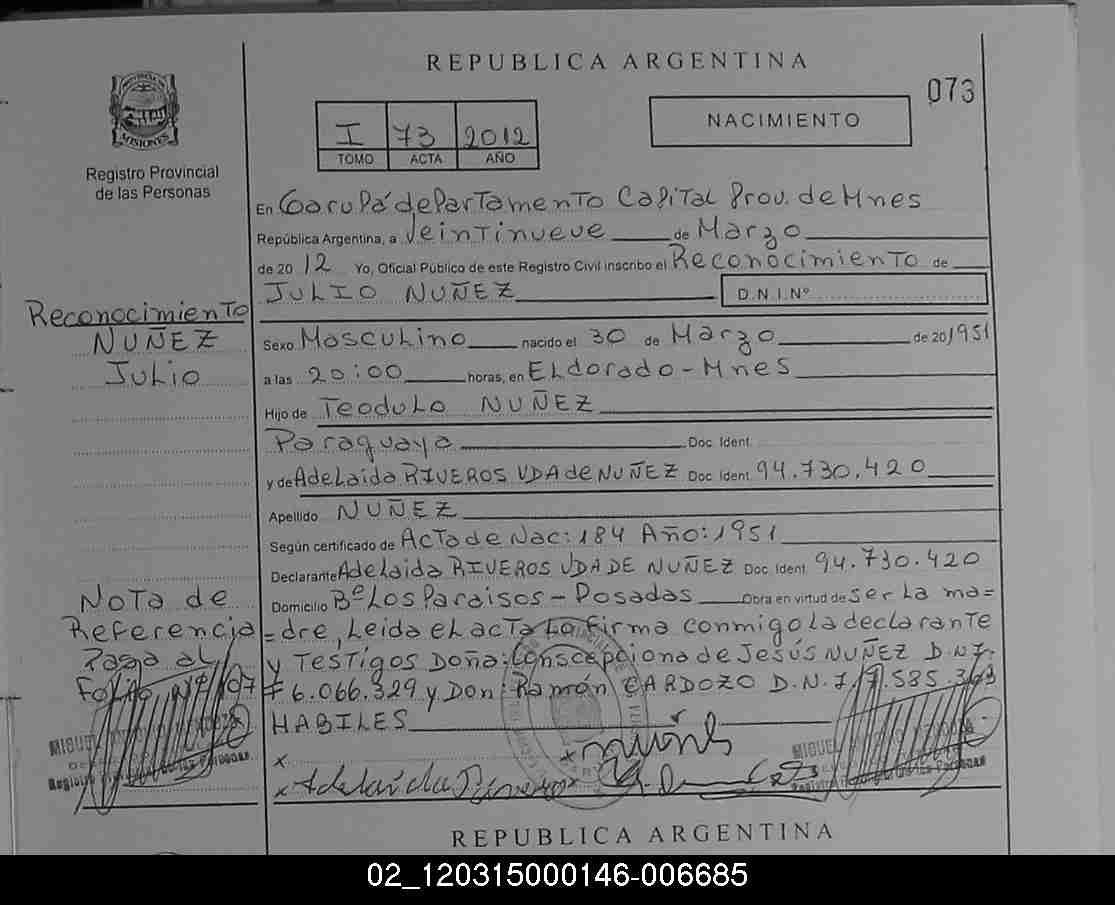 REPUBLICA ARGENTINA
073
PROVINCIA DE MISIONES
Registro Provincial
de las Personas
I 73 2012
TOMO ACTA AÑO
NACIMIENTO
En Garupá departamento Capital Prov. de Mnes
República Argentina, a Veintinueve de Marzo
de 2012 Yo, Oficial Público de este Registro Civil inscribo el Reconocimiento de
JULIO NUÑEZ D.N.I.Nº
Reconocimiento
NUÑEZ
Julio
Sexo Masculino nacido el 30 de Marzo de 20/1951
a las 20:00 horas, en Eldorado - Mnes
Hijo de Teodulo NUÑEZ
Paraguaya Doc. Ident.
y de Adelaida RIVEROS VDA de NUÑEZ Doc. Ident. 94.730.420
Apellido NUÑEZ
Según certificado de Acta de Nac: 184 Año: 1951
Declarante Adelaida RIVEROS VDA DE NUÑEZ Doc. Ident. 94.730.420
Domicilio Bº Los Paraisos - Posadas Obra en virtud de ser la ma=
=dre, Leida el acta la firma conmigo la declarante
y Testigos Doña: Conscepciona de Jesús NUÑEZ D.N.I.
6.066.329 y Don: Ramón CARDOZO D.N.I.
HABILES
Nota de
Referencia
Pasa al
Folio Nº 107
MIGUEL
Registro Provincial de las Personas
Adelaida Riveros
MIGUEL
REPUBLICA ARGENTINA
02_120315000146-006685